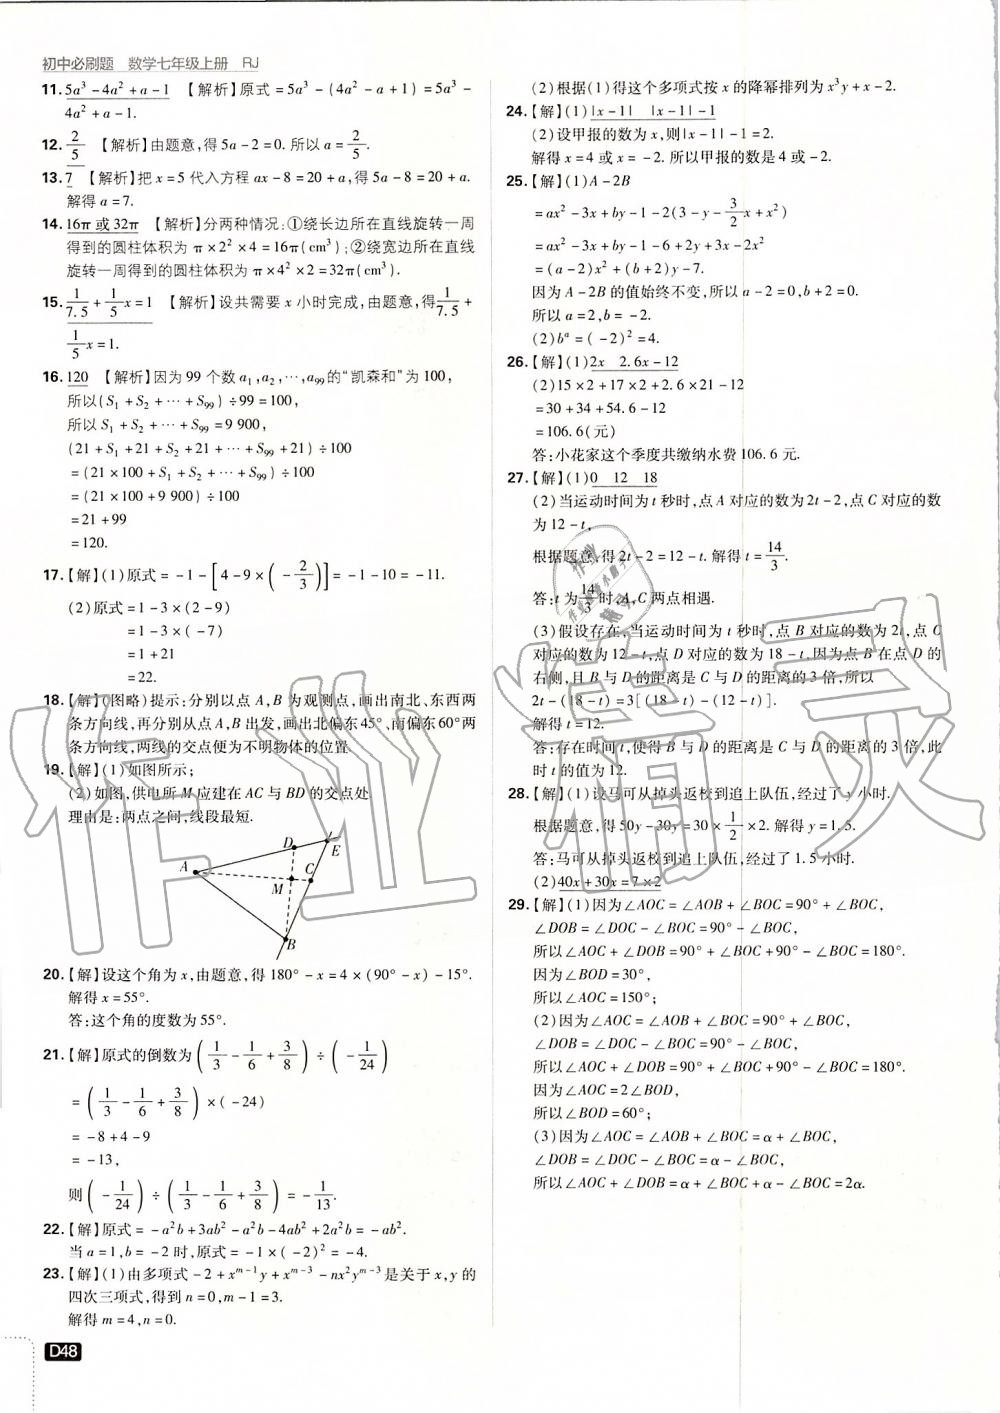 初中必刷题 数学七年级上册 RJ
11. 5a³-4a²+a-1 【解析】原式=5a³-(4a²-a+1)=5a³-
4a²+a-1.
12. 2/5 【解析】由题意,得5a-2=0.所以a=2/5.
13. 7 【解析】把x=5代入方程ax-8=20+a,得5a-8=20+a.
解得a=7.
14. 16π或32π 【解析】分两种情况:①绕长边所在直线旋转一周
得到的圆柱体积为π×2²×4=16π(cm³);②绕宽边所在直线
旋转一周得到的圆柱体积为π×4²×2=32π(cm³).
15. 1/7.5+1/5x=1 【解析】设共需要x小时完成,由题意,得1/7.5+
1/5x=1.
16. 120 【解析】因为99个数a₁,a₂,…,a₉₉的“凯森和”为100,
所以(S₁+S₂+…+S₉₉)÷99=100,
所以S₁+S₂+…+S₉₉=9 900,
(21+S₁+21+S₂+21+…+S₉₉+21)÷100
=(21×100+S₁+S₂+…+S₉₉)÷100
=(21×100+9 900)÷100
=21+99
=120.
17.【解】(1)原式=-1-[4-9×(-2/3)]=-1-10=-11.
(2)原式=1-3×(2-9)
=1-3×(-7)
=1+21
=22.
18.【解】(图略)提示:分别以点A,B为观测点,画出南北、东西两
条方向线,再分别从点A,B出发,画出北偏东45°、南偏东60°两
条方向线,两线的交点便为不明物体的位置.
19.【解】(1)如图所示;
(2)如图,供电所M应建在AC与BD的交点处.
理由是:两点之间,线段最短.
D
E
A
M
C
B
20.【解】设这个角为x,由题意,得180°-x=4×(90°-x)-15°.
解得x=55°.
答:这个角的度数为55°.
21.【解】原式的倒数为(1/3-1/6+3/8)÷(-1/24)
=(1/3-1/6+3/8)×(-24)
=-8+4-9
=-13,
则(-1/24)÷(1/3-1/6+3/8)=-1/13.
22.【解】原式=-a²b+3ab²-a²b-4ab²+2a²b=-ab².
当a=1,b=-2时,原式=-1×(-2)²=-4.
23.【解】(1)由多项式-2+xᵐ⁻¹y+xᵐ⁻³-nx²yᵐ⁻³是关于x,y的
四次三项式,得到n=0,m-1=3.
解得m=4,n=0.
D48
(2)根据(1)得这个多项式按x的降幂排列为x³y+x-2.
24.【解】(1)|x-1| |x-1|-1
(2)设甲报的数为x,则|x-1|-1=2.
解得x=4或x=-2.所以甲报的数是4或-2.
25.【解】(1)A-2B
=ax²-3x+by-1-2(3-y-3/2x+x²)
=ax²-3x+by-1-6+2y+3x-2x²
=(a-2)x²+(b+2)y-7.
因为A-2B的值始终不变,所以a-2=0,b+2=0.
所以a=2,b=-2.
(2)bᵃ=(-2)²=4.
26.【解】(1)2x 2.6x-12
(2)15×2+17×2+2.6×21-12
=30+34+54.6-12
=106.6(元)
答:小花家这个季度共缴纳水费106.6元.
27.【解】(1)0 12 18
(2)当运动时间为t秒时,点A对应的数为2t-2,点C对应的数
为12-t,
根据题意,得2t-2=12-t.解得t=14/3.
答:t为14/3时,A,C两点相遇.
(3)假设存在,当运动时间为t秒时,点B对应的数为2t,点C
对应的数为12-t,点D对应的数为18-t,因为点B在点D的
右侧,且B与D的距离是C与D的距离的3倍,所以
2t-(18-t)=3[(18-t)-(12-t)].
解得t=12.
答:存在时间t,使得B与D的距离是C与D的距离的3倍,此
时t的值为12.
28.【解】(1)设马可从掉头返校到追上队伍,经过了y小时.
根据题意,得50y-30y=30×1/2×2.解得y=1.5.
答:马可从掉头返校到追上队伍,经过了1.5小时.
(2)40x+30x=7×2
29.【解】(1)因为∠AOC=∠AOB+∠BOC=90°+∠BOC,
∠DOB=∠DOC-∠BOC=90°-∠BOC,
所以∠AOC+∠DOB=90°+∠BOC+90°-∠BOC=180°.
因为∠BOD=30°,
所以∠AOC=150°;
(2)因为∠AOC=∠AOB+∠BOC=90°+∠BOC,
∠DOB=∠DOC-∠BOC=90°-∠BOC,
所以∠AOC+∠DOB=90°+∠BOC+90°-∠BOC=180°.
因为∠AOC=2∠BOD,
所以∠BOD=60°;
(3)因为∠AOC=∠AOB+∠BOC=α+∠BOC,
∠DOB=∠DOC-∠BOC=α-∠BOC,
所以∠AOC+∠DOB=α+∠BOC+α-∠BOC=2α.
作业精灵